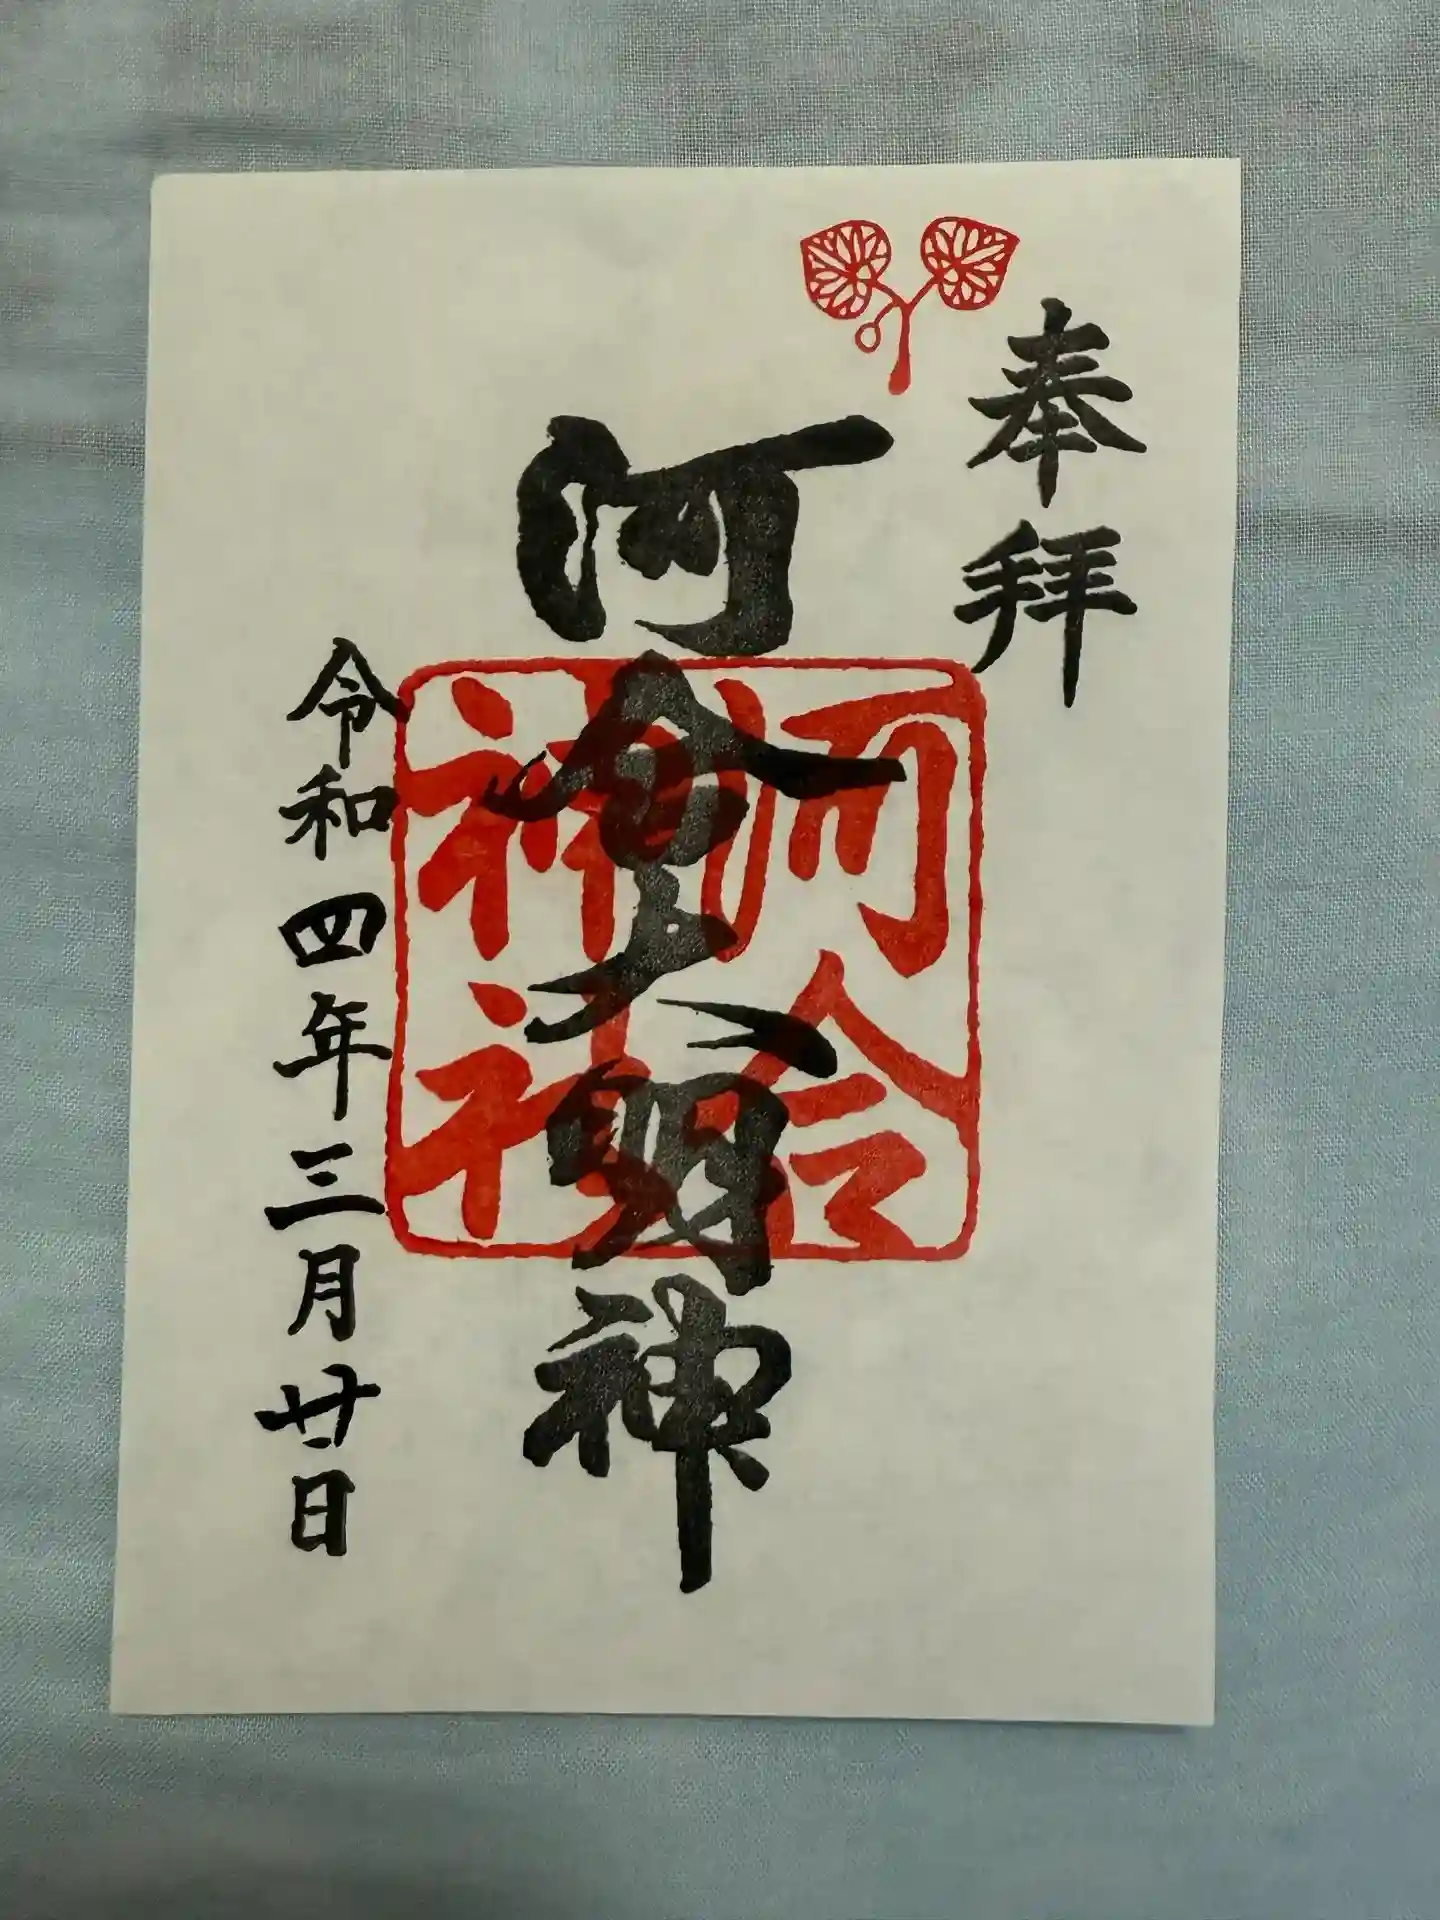 奉拝
河合大明神
河合
神社
令和四年三月廿日